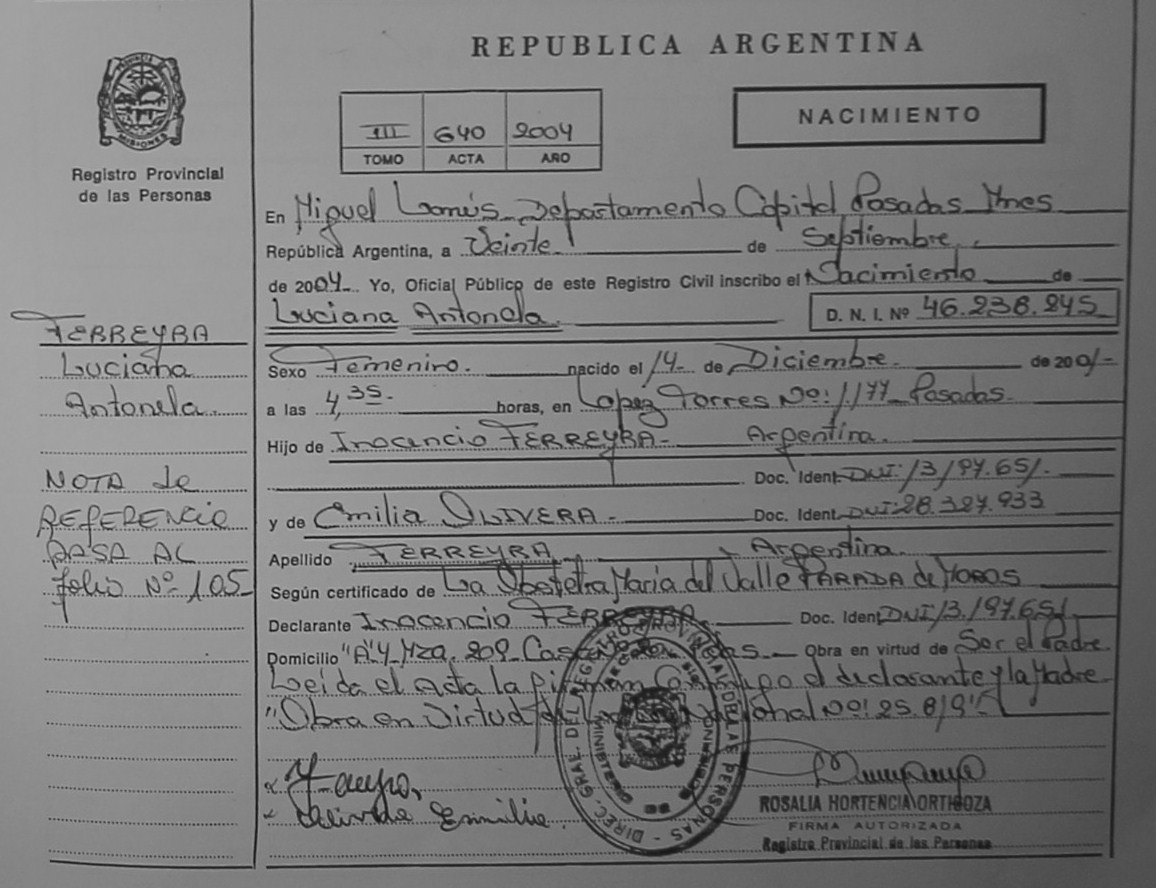 REPUBLICA ARGENTINA
PROVINCIA DE MISIONES
Registro Provincial
de las Personas
III 640 2004
TOMO ACTA AÑO
NACIMIENTO
En Miguel Lanús Departamento Capital Posadas Mnes
República Argentina, a Veinte de Septiembre
de 2004 Yo, Oficial Público de este Registro Civil inscribo el Nacimiento de
Luciana Antonela D. N. I. Nº 46.238.245
FERREYRA
Luciana
Antonela
NOTA de
REFERENCIA
PASA AL
folio Nº 105
Sexo Femenino. nacido el 14 de Diciembre de 2001
a las 4,35 horas, en Lopez Torres Nº: 1.177 Posadas.
Hijo de Inocencio FERREYRA Argentina.
Doc. Ident. DNI: 13.197.651.
y de Emilia OLIVERA Doc. Ident. DNI: 28.327.933
Apellido FERREYRA Argentina.
Según certificado de La Obstetra Maria del Valle PARADA de MOROS
Declarante Inocencio FERREYRA Doc. Ident. DNI 13.197.651.
Domicilio "A" 4 Mza. 209 Obra en virtud de Ser el Padre.
Leida el Acta la firman Conmigo el declarante y la Madre
"Obra en Virtud Nº: 25.819"
Emilia
ROSALIA HORTENCIA ORTIGOZA
FIRMA AUTORIZADA
Registro Provincial de las Personas
DIREC. GRAL. DEL REGISTRO PROVINCIAL DE LAS PERSONAS